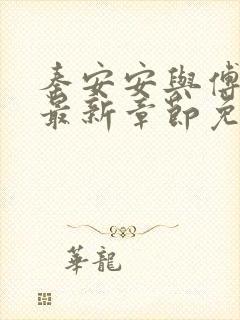 秦安安與傅
最新章節免
華龍